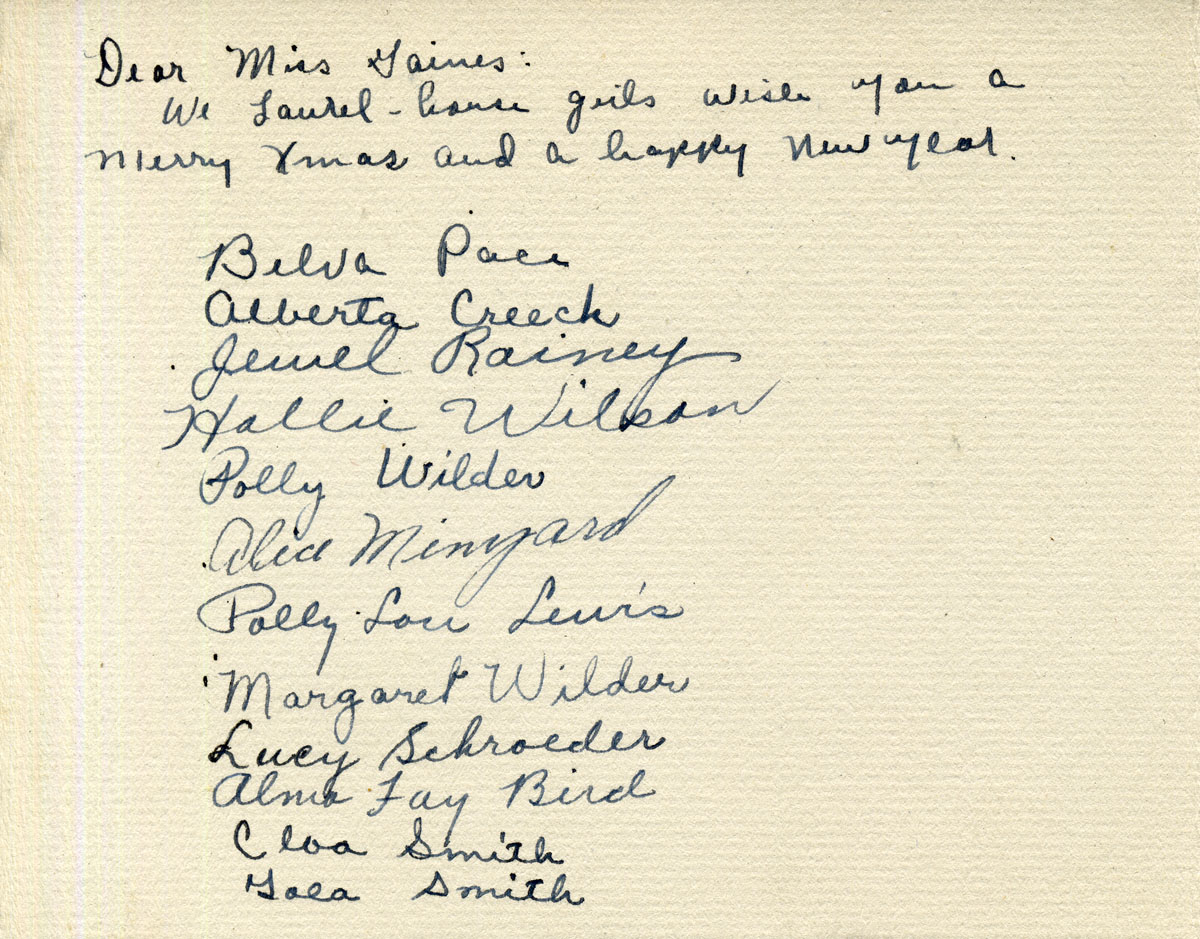 Dear Miss Gaines:
We Laurel-house girls wish you a
Merry Xmas and a happy New year.
Belva Pace
Alberta Creech
Jewel Rainey
Hallie Wilson
Polly Wilder
Alice Minyard
Polly Lou Lewis
Margaret Wilder
Lucy Schroeder
Alma Fay Bird
Cloa Smith
Smith